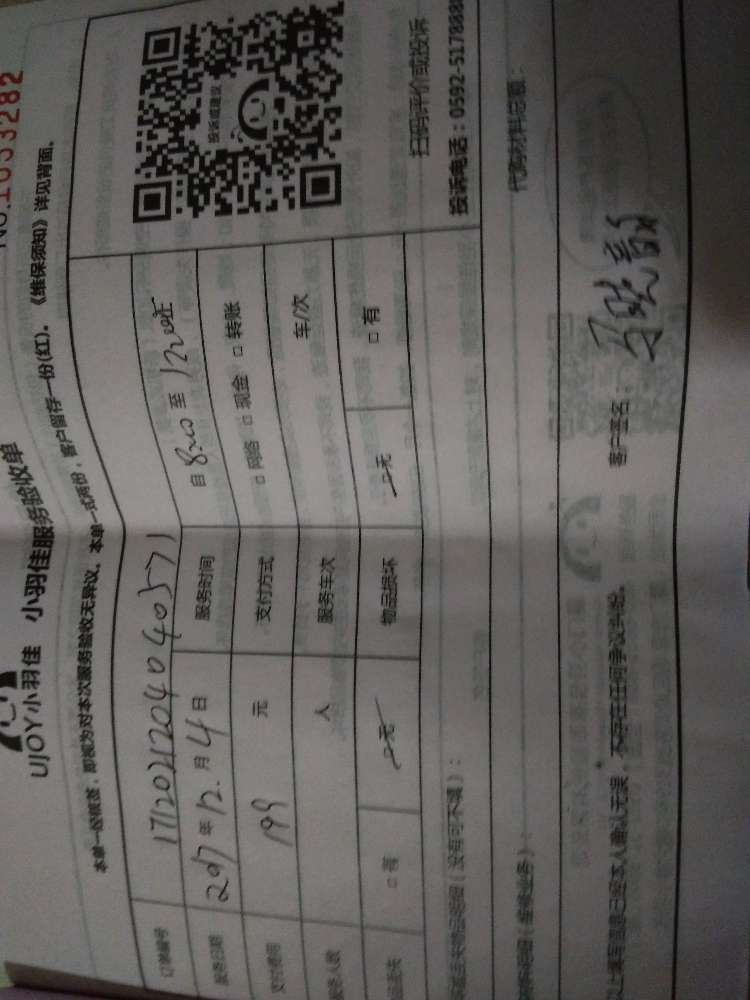 UJOY小羽佳 小羽佳服务验收单
NO.1053282
本单一经核签，即视为对本次服务验收无异议。本单一式两份，客户留存一份(红)。《维保须知》详见背面。
订单编号 171202120404040571
服务日期 2017年12月4日 服务时间 自8:00至12:00
支付费用 199元 支付方式 □网络 □现金 □转账
服务人数 人 服务车次 车/次
□有 □无 物品损坏 □无 □有
投诉或建议
扫码评价或投诉
投诉电话：0592-5178888
(没有可不填)：
(维修业务)：
代购材料记账：
以上填写信息已经本人确认无误，不存在任何争议纠纷。 客户签名：